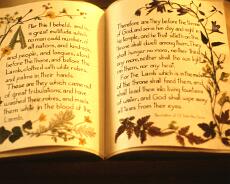 After this I beheld, and lo,
a great multitude which
no man could number, of
all nations, and kindreds,
and people, and tongues, stood
before the throne, and before the
Lamb, clothed with white robes,
and palms in their hands.
These are they which came out
of great tribulation, and have
washed their robes, and made
them white in the blood of the
Lamb.
Therefore are they before the throne
of God, and serve him day and night in
his temple, and he that sitteth on the
throne shall dwell among them. They
shall hunger no more, neither thirst
any more, neither shall the sun light
on them, nor any heat.
For the Lamb which is in the midst
of the throne shall feed them, and
shall lead them unto living fountains
of water, and God shall wipe away
all tears from their eyes.